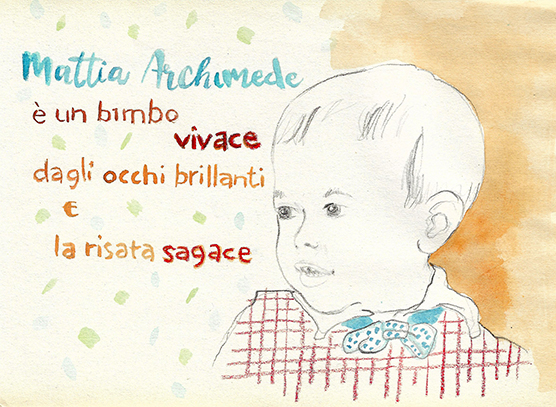 Mattia Archimede
è un bimbo
vivace
dagli occhi brillanti
e
la risata sagace